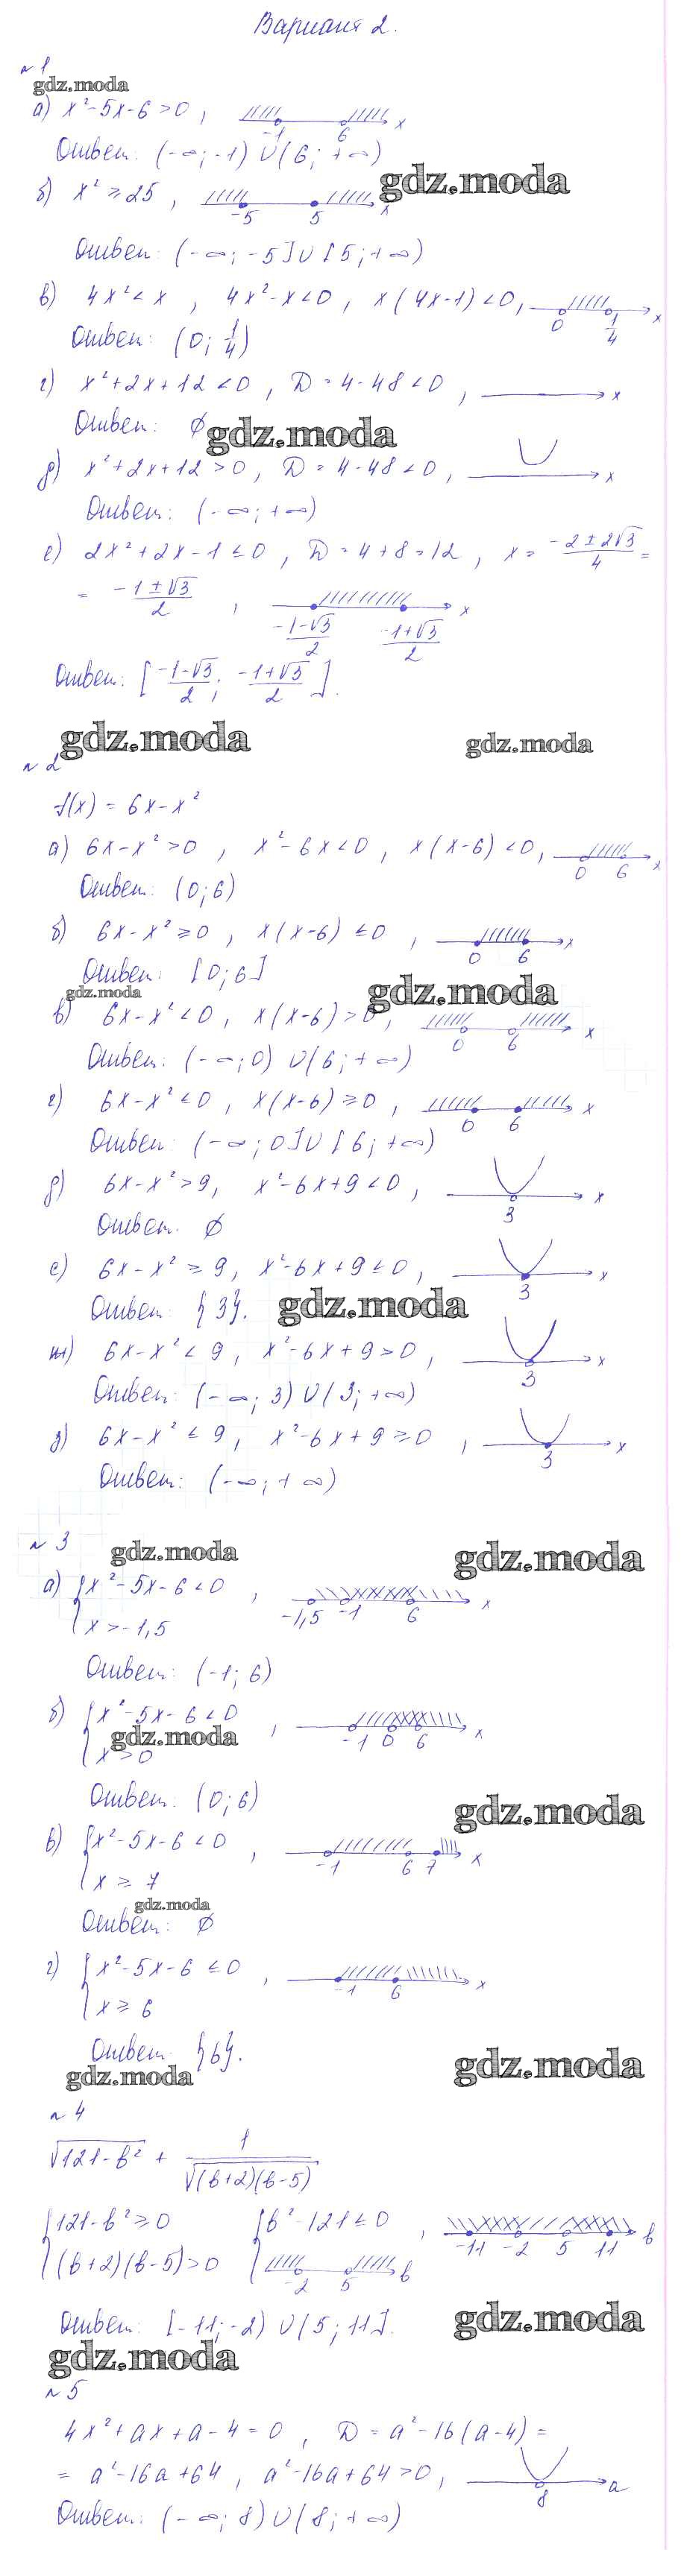 Вариант 2.
№1
gdz.moda
а) x²-5x-6>0, -1 6 x
Ответ: (-∞; -1) ∪ (6; +∞)
gdz.moda
б) x² ≥ 25, -5 5 x
Ответ: (-∞; -5] ∪ [5; +∞)
в) 4x² < x, 4x²-x<0, x(4x-1)<0, 0 1/4 x
Ответ: (0; 1/4)
г) x²+2x+12<0, D = 4-48<0, x
Ответ: ∅
gdz.moda
д) x²+2x+12>0, D = 4-48<0, x
Ответ: (-∞; +∞)
е) 2x²+2x-1≤0, D = 4+8=12, x = (-2±2√3)/4 =
= (-1±√3)/2, (-1-√3)/2 (-1+√3)/2 x
Ответ: [(-1-√3)/2; (-1+√3)/2].
gdz.moda gdz.moda
№2
f(x) = 6x-x²
а) 6x-x²>0, x²-6x<0, x(x-6)<0, 0 6 x
Ответ: (0; 6)
б) 6x-x²≥0, x(x-6)≤0, 0 6 x
Ответ: [0; 6]
gdz.moda gdz.moda
в) 6x-x²<0, x(x-6)>0, 0 6 x
Ответ: (-∞; 0) ∪ (6; +∞)
г) 6x-x²≤0, x(x-6)≥0, 0 6 x
Ответ: (-∞; 0] ∪ [6; +∞)
д) 6x-x²>9, x²-6x+9<0, 3 x
Ответ: ∅
е) 6x-x²≥9, x²-6x+9≤0, 3 x
Ответ: {3}.
gdz.moda
ж) 6x-x²<9, x²-6x+9>0, 3 x
Ответ: (-∞; 3) ∪ (3; +∞)
з) 6x-x²≤9, x²-6x+9≥0, 3 x
Ответ: (-∞; +∞)
№3
gdz.moda gdz.moda
а) {x²-5x-6<0, -1,5 -1 6 x
x>-1,5
Ответ: (-1; 6)
б) {x²-5x-6<0, -1 0 6 x
x>0
gdz.moda
Ответ: (0; 6)
gdz.moda
в) {x²-5x-6<0, -1 6 7 x
x ≥ 7
gdz.moda
Ответ: ∅
г) {x²-5x-6≤0, -1 6 x
x ≥ 6
Ответ: {6}.
gdz.moda gdz.moda
№4
√(121-b²) + 1/√((b+2)(b-5))
{121-b²≥0 {b²-121≤0, -11 -2 5 11 b
(b+2)(b-5)>0 -2 5 b
Ответ: [-11; -2) ∪ (5; 11].
gdz.moda
gdz.moda
№5
4x²+ax+a-4=0, D = a²-16(a-4) =
= a²-16a+64, a²-16a+64>0, 8 a
Ответ: (-∞; 8) ∪ (8; +∞)